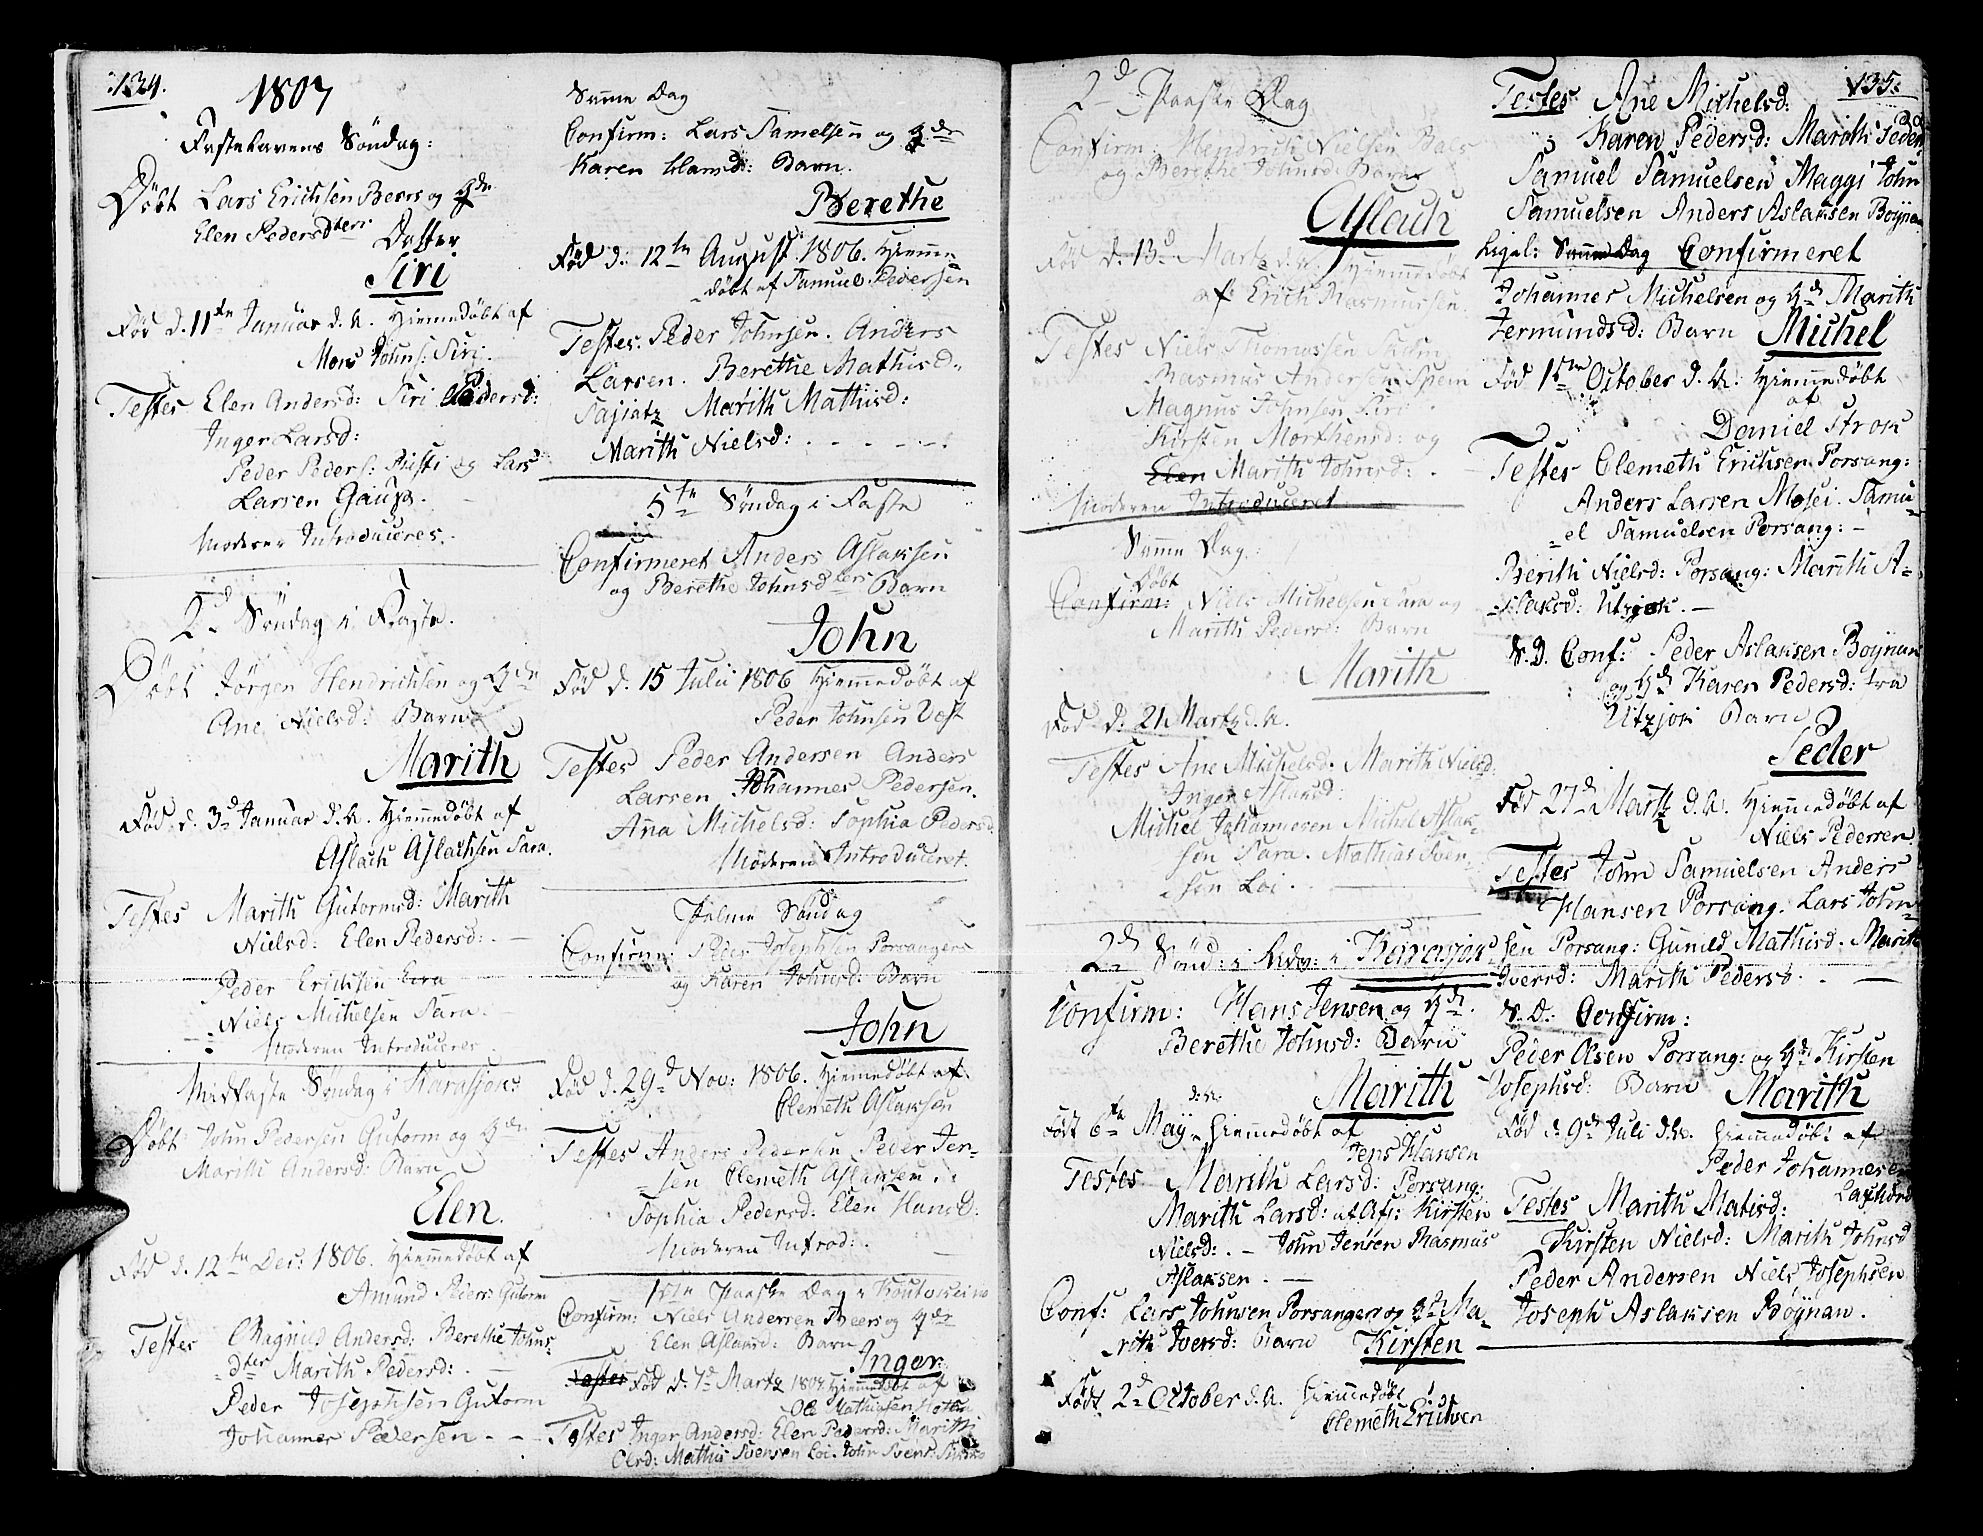 :134.
1807
Fastelavens Søndag:
Døbt Lars Erichsen Beers og Hde
Elen Pedersdters
Datter
Siri
Fød d. 11te Januar d. A. Hiemmedøbt af
Mons Johns: Siri.
Testes Elen Andersd: Siri Pedersd:
Inger Larsd:
Peder Peders: og Lars
Larsen Gaup.
Moderen Introduceres.
2d Søndag i Faste.
Døbt Jørgen Hendrichsen og Hde
Ane Nielsd: Barn
Marith
Fød d. 3d Januar d. A. Hiemmedøbt af
Aslach Aslachsen Sara.
Testes Marith Gutormsd: Marith
Nielsd: Elen Pedersd:
Peder Erichsen
Niels Michelsen Sara.
Moderen Introduceres
Midfaste Søndag i Karasjok:
Døbt John Pedersen Gutorm og Hde
Marith Andersd: Barn
Elen.
Fød d. 12te Dec: 1806. Hiemmedøbt af
Amund Peders Gutorm
Testes Magnild Andersd: Berethe Johns-
dter Marith Pedersd:
Peder Josephsen Gutorm
Johannes Pedersen.
Samme Dag
Confirm: Lars Samelsen og Hde
Karen Hansd: Barn.
Berethe
Fød d. 12te August 1806. Hiemme
døbt af Samuel Pedersen
Testes. Peder Johnsen. Anders
Larsen. Berethe Mathisd.
Marith Mathisd:
Marith Nielsd:
5te Søndag i Faste
Confirmeret Anders Aslaksen
og Berethe Johnsdters Barn
John
Fød d. 15 Julii 1806 Hiemmedøbt af
Peder Johnsen Vest
Testes Peder Andersen Anders
Larsen Johannes Pedersen.
Ana Michelsd: Sophia Pedersd.
Moderen Introduceret.
Palme Søndag
Confirm: Peder Josephsen Porsanger
og Karen Johnsd: Barn
John
Fød d. 29d Nov: 1806. Hiemmedøbt af
Clemeth Aslaksen
Testes Anders Pedersen Peder Jen-
sen Clemeth Aslaksen.
Sophia Pedersd: Elen Hansd:
Moderen Introd:
1ste Paaske Dag i Koutokeino
Confirm: Niels Andersen Beers og Hde
Elen Aslaksd: Barn
Inger.
Fød d: 7d Martz 1807. Hiemmedøbt af
Ole Mathisen Hætta
Testes Inger Andersd: Elen Pedersd: Marith
Olsd: Mathis Svensen Loi. John Svens:
2d Paaske Dag
Confirm: Hendrich Nielsen Bals
og Berethe Johnsd: Barn
Aslach
Fød d. 13d Martz d. A. Hiemmedøbt
af Erich Rasmussen.
Testes Niels Thomassen
Rasmus Andersen Spein
Magnus Johnsen Siri.
Kirsten Morthensd: og
Elen Marith Johnsd:
Moderen Introduceret
Samme Dag.
Døbt
Confirm: Niels Michelsen Sara og
Marith Pedersd: Barn
Marith
Fød d: 21 Martz d. A.
Testes Ane Michelsd: Marith Nielsd:
Inger Aslaksd:
Michel Johannesen Michel Aslak-
sen Sara. Mathias Sven-
sen Loi.
2d Sønd: i Adv: i Karasjok
Confirm: Hans Jensen og Hde
Berethe Johnsd: Barn
Marith
d. A.
Født 6te May Hiemmedøbt af
Jens Hansen
Testes Marith Larsd: Porsang:
Marith Larsd: Kirsten
Nielsd: - John Jensen Rasmus
Aslaksen.
Conf: Lars Johnsen Porsanger og Hde Ma-
rith Iversd: Barn Kirsten
Født 2d October d. A. Hiemmedøbt
Clemeth Erichsen
135:
Testes Ane Michelsd:
Karen Pedersd: Marith Peders
Samuel Samuelsen Maggi John
Samuelsen Anders Aslaksen Boynan
Ligel: Samme Dag Confirmeret
Johannes Michelsen og Hde Marith
Jermundsd: Barn Michel
Fød 15de October d. A: Hiemmedøbt
af
Daniel Strok
Testes Clemeth Erichsen Porsang:
Anders Larsen Mosei. Samu-
el Samuelsen Porsang: -
Berith Nielsd: Porsang: Marith A-
slaksd: Utzjok. -
S. D. Conf: Peder Aslaksen Boynan
og Hde Karen Pedersd: fra
Utzjok Barn
Peder
Fød 27d Martz d. A. Hiemmedøbt af
Niels Pedersen
Testes John Samuelsen Anders
Hansen Porsang. Lars John-
sen Porsang: Gunild Mathisd. Marith
Iversd: Marith Pedersd.
S. D. Confirm:
Peder Olsen Porsang: og Hde Kirsten
Josephsd: Barn Marith
Fød d: 9de Juli d. A. Hiemmedøbt af
Peder Johannesen
Laxfiord
Testes Marith Matisd:
Kirsten Nielsd: Marith Johnsd
Peder Andersen Niels Josephsen
Joseph Aslaksen Boynan.